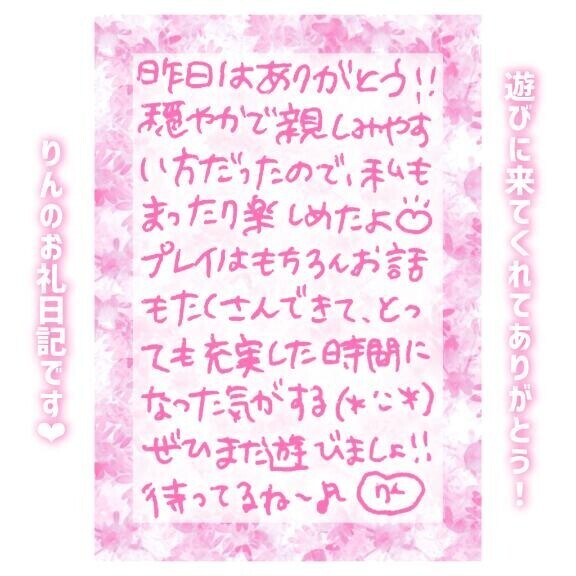 遊びに来てくれてありがとう!
昨日はありがとう!!
穏やかで親しみやす
い方だったので、私も
まったり楽しめたよ
プレイはもちろんお話
もたくさんできて、とっ
ても充実した時間に
なった気がする(*'ω'*)
ぜひまた遊びましょ!!
待ってるね〜♪ りん
りんのお礼日記です❤